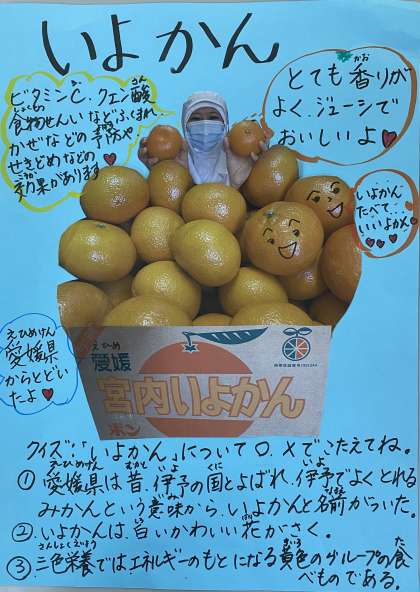 いよかん
ビタミンC、クエン酸
食物せんいなどふくまれ、
かぜなどの予防や
せきどめなどの
効果があります
とても香りが
よく、ジューシで
おいしいよ
いよかん
たべて…
いいよかん
えひめけん
愛媛県
からとどい
たよ
えひめ
愛媛
宮内いよかん
ポン
クイズ:「いよかん」について○、×でこたえてね。
①愛媛県は昔、伊予の国とよばれ、伊予でよくとれる
みかんという意味から、いよかんと名前がついた。
②いよかんは、白いかわいい花がさく。
③三色栄養ではエネルギーのもとになる黄色のグループの食
べものである。